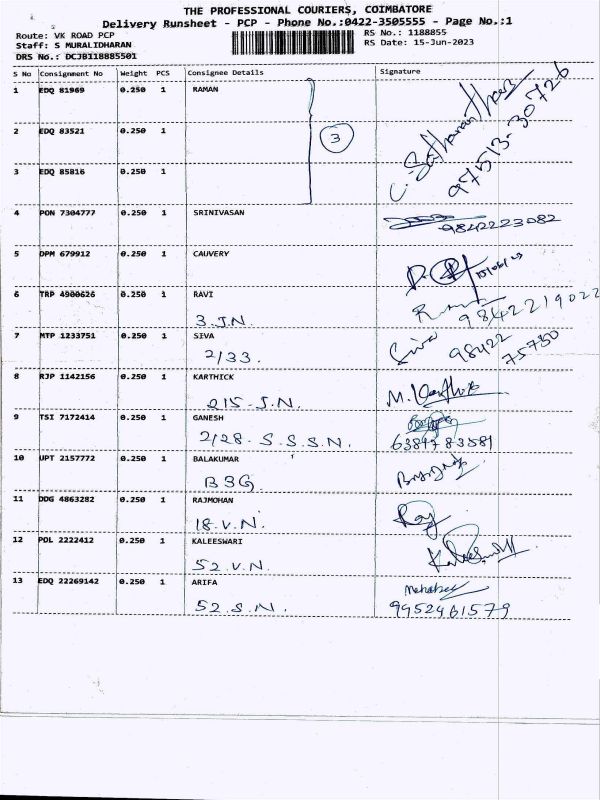 THE PROFESSIONAL COURIERS, COIMBATORE
Delivery Runsheet - PCP - Phone No.:0422-3505555 - Page No.:1
Route: VK ROAD PCP RS No.: 1188855
Staff: S MURALIDHARAN RS Date: 15-Jun-2023
DRS No.: DCJB118885501
S No Consignment No Weight PCS Consignee Details Signature
1 EDQ 81969 0.250 1 RAMAN
2 EDQ 83521 0.250 1 3
97513-30726
3 EDQ 85816 0.250 1
4 PON 7304777 0.250 1 SRINIVASAN
9842223082
5 DPM 679912 0.250 1 CAUVERY
6 TRP 4900626 0.250 1 RAVI
3.J.N. 9842219022
7 MTP 1233751 0.250 1 SIVA Siva 98422
2/33. 75730
8 RJP 1142156 0.250 1 KARTHICK
215.J.N.
9 TSI 7172414 0.250 1 GANESH
2/28.S.S.S.N. 6389783581
10 UPT 2157772 0.250 1 BALAKUMAR
B3G.
11 DDG 4863282 0.250 1 RAJMOHAN
18.V.N. Raj
12 POL 2222412 0.250 1 KALEESWARI
52.V.N.
13 EDQ 22269142 0.250 1 ARIFA
52.S.N. 9952461579